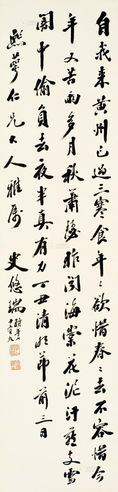 自我来黄州已過三寒食年〻欲惜春〻去不容惜今
年又苦雨多月秋蕭瑟卧聞海棠花泥汙燕支雪
闇中偷負去夜半真有力丁丑清明节前三日
熙夢仁兄大人雅属 史悠瑞